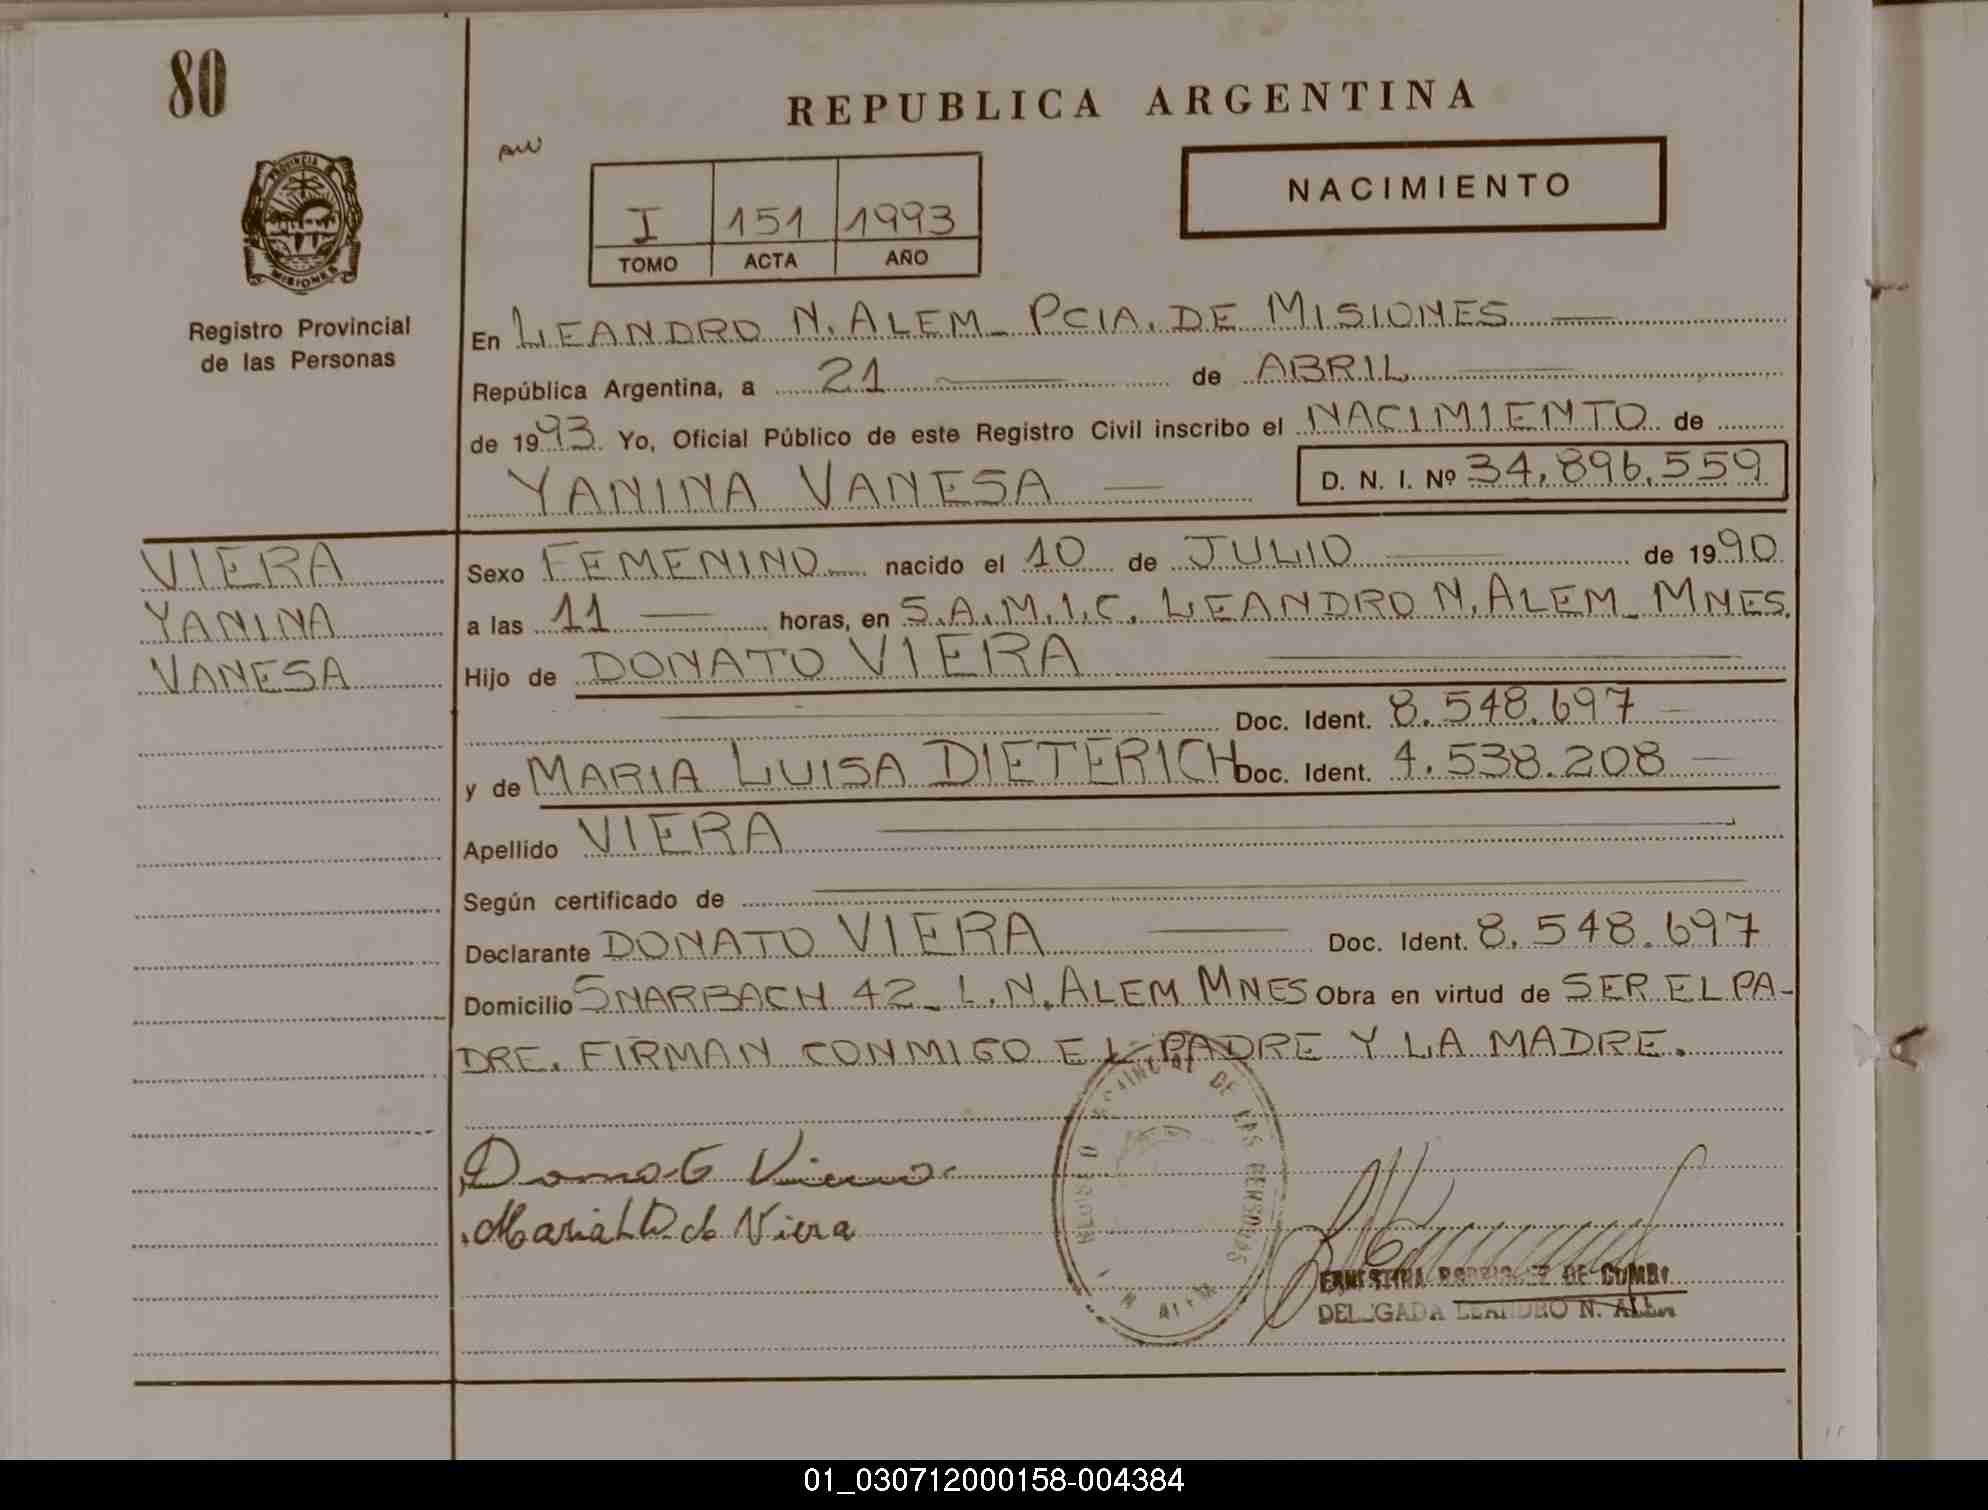 80
REPUBLICA ARGENTINA
NACIMIENTO
I 151 1993
TOMO ACTA AÑO
PROVINCIA DE
MISIONES
Registro Provincial
de las Personas
En LEANDRO N. ALEM - PCIA. DE MISIONES
República Argentina, a 21 de ABRIL
de 1993. Yo, Oficial Público de este Registro Civil inscribo el NACIMIENTO de
YANINA VANESA D. N. I. Nº 34.896.559
VIERA
YANINA
VANESA
Sexo FEMENINO nacido el 10 de JULIO de 1990
a las 11 horas, en S.A.M.I.C. LEANDRO N. ALEM - MNES.
Hijo de DONATO VIERA
Doc. Ident. 8.548.697
y de MARIA LUISA DIETERICH Doc. Ident. 4.538.208
Apellido VIERA
Según certificado de
Declarante DONATO VIERA Doc. Ident. 8.548.697
Domicilio SNARBACH 42 - L.N. ALEM MNES Obra en virtud de SER EL PA-
DRE. FIRMAN CONMIGO EL PADRE Y LA MADRE.
Viera
Maria L D de Viera
DE LAS PERSONAS
ERNESTINA RODRIGUEZ DE
DELEGADA LEANDRO N. ALEM
01_030712000158-004384